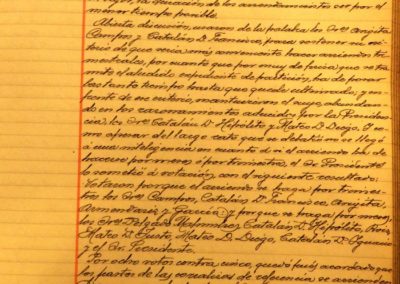 mejor, la duración de los arrendamientos ser por el
menor tiempo posible.
Abierta discusión, usaron de la palabra los Sres. Angita
Campos, y Catalán D. Francisco, para sostener su cri
terio de que sería más conveniente hacer arriendos tri
mestrales, por cuanto que por muy de prisa que se tra
mite el aludido expediente de partición, ha de pasar
bastante tiempo hasta que quede ultimado; y en
contra de ese criterio, mantuvieron el suyo, abundan
do en los razonamientos aducidos por la Presiden
cia, los Sres. Catalán D. Hipólito y Mateo D. Diego. Y co
mo apesar del largo rato que se debatió no se llegó
á una inteligencia en cuanto á si el arriendo ha de
hacerse por meses ó por trimestres, el Sr. Presidente
lo sometió á votación, con el siguiente resultado:
Votaron porque el arriendo se haga por trimes
tres, los Sres. Campos, Catalán D. Francisco, Angita,
Armendáriz y García; y porque se haga por meses,
los Sres. Delgado, Catalán D. Hipólito, Ruiz,
Mateo D. Justo, Mateo D. Diego, Catalán D. Ignacio
y el Sr. Presidente.
Por ocho votos contra cinco, quedó pues acordado que
los pastos de las corralizas de referencia se arrienden